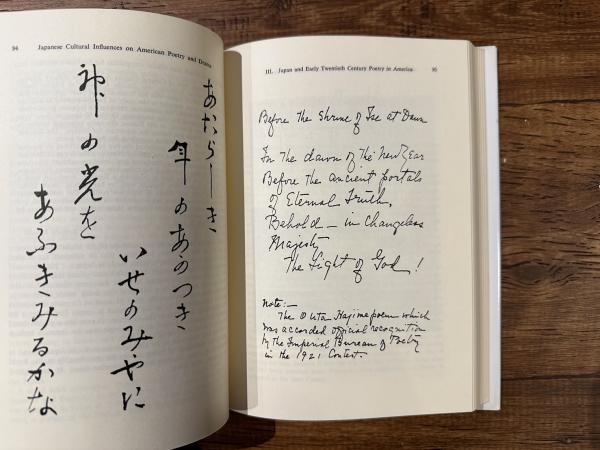 94 Japanese Cultural Influences on American Poetry and Drama
あたらしき
年のあかつき
いせのみやに
神の光を
あふきみるかな
III. Japan and Early Twentieth Century Poetry in America 95
Before the Shrine of Ise at Dawn
In the dawn of the New Year
Before the ancient portals
of Eternal Truth,
Behold – in changeless
Majesty
The Light of God!
Note:—
The O Uta Hajime poem which
was accorded official recognition
by the Imperial Bureau of Poetry
in the 1921 Contest.